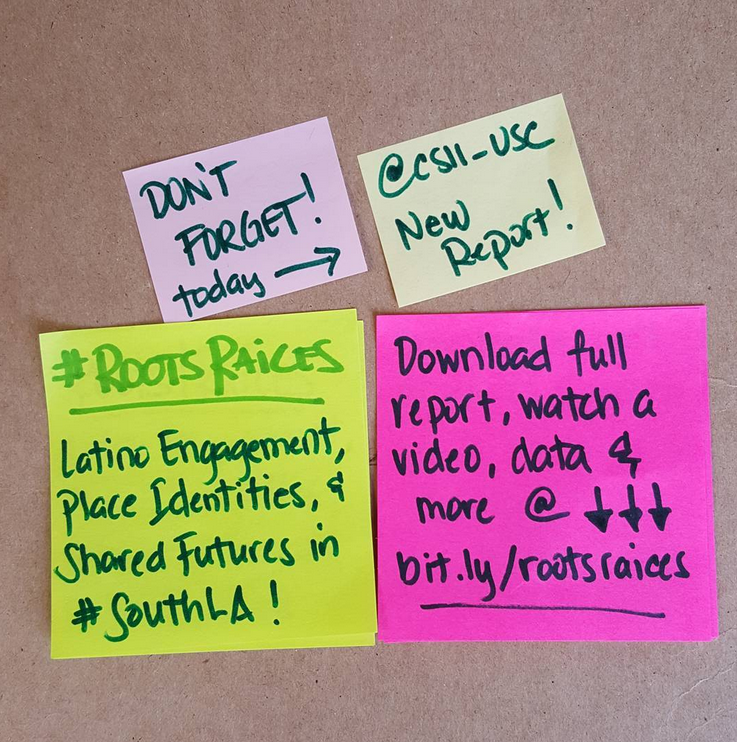 DON'T
FORGET!
today →
@CSII-USC
New
Report!
#ROOTSRAICES
Latino Engagement,
Place Identities, &
Shared Futures in
#SouthLA!
Download full
report, watch a
video, data &
more @ ↓↓↓
bit.ly/rootsraices